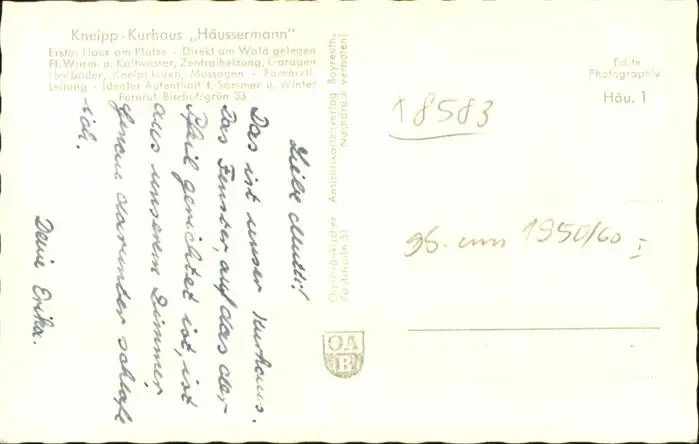 Kneipp-Kurhaus „Häussermann"
Erstes Haus am Platze - Direkt am Wald gelegen
Fl. Warm- u. Kaltwasser, Zentralheizung, Garagen
Heilbäder, Kneippkuren, Massagen - Fachärztl.
Leitung - Idealer Aufenthalt f. Sommer u. Winter
Fernruf Bischofsgrün 23
Liebe Mutti!
Das ist unser Kurhaus.
Das Fenster, auf das der
Pfeil gerichtet ist, ist
aus unserem Zimmer,
genau darunter schlafe
ich.
Deine Erika.
Ostfränkischer Ansichtskartenverlag Bayreuth,
Nachdruck verboten!
OAB
Echte
Photographie
Häu. 1
18583
um 1950/60